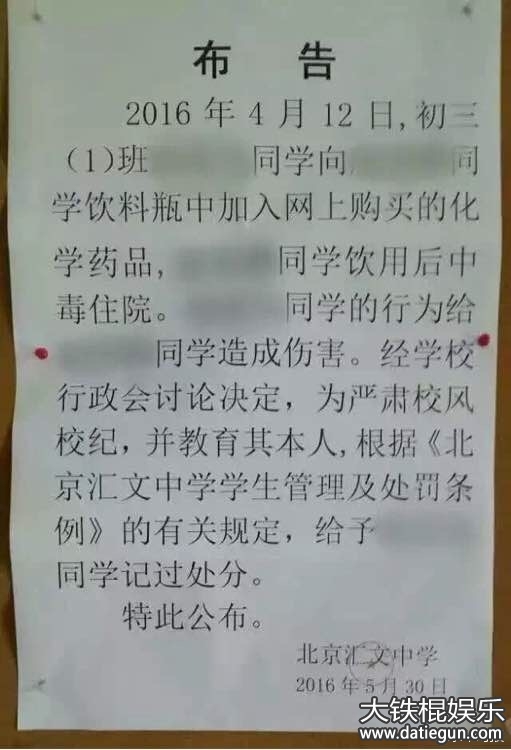 布 告
2016 年 4 月 12 日,初三
(1)班 同学向 同
学饮料瓶中加入网上购买的化
学药品, 同学饮用后中
毒住院。 同学的行为给
同学造成伤害。经学校
行政会讨论决定，为严肃校风
校纪，并教育其本人,根据《北
京汇文中学学生管理及处罚条
例》的有关规定，给予
同学记过处分。
特此公布。
北京汇文中学
2016 年 5 月 30 日
大铁棍娱乐
www.datiegun.com